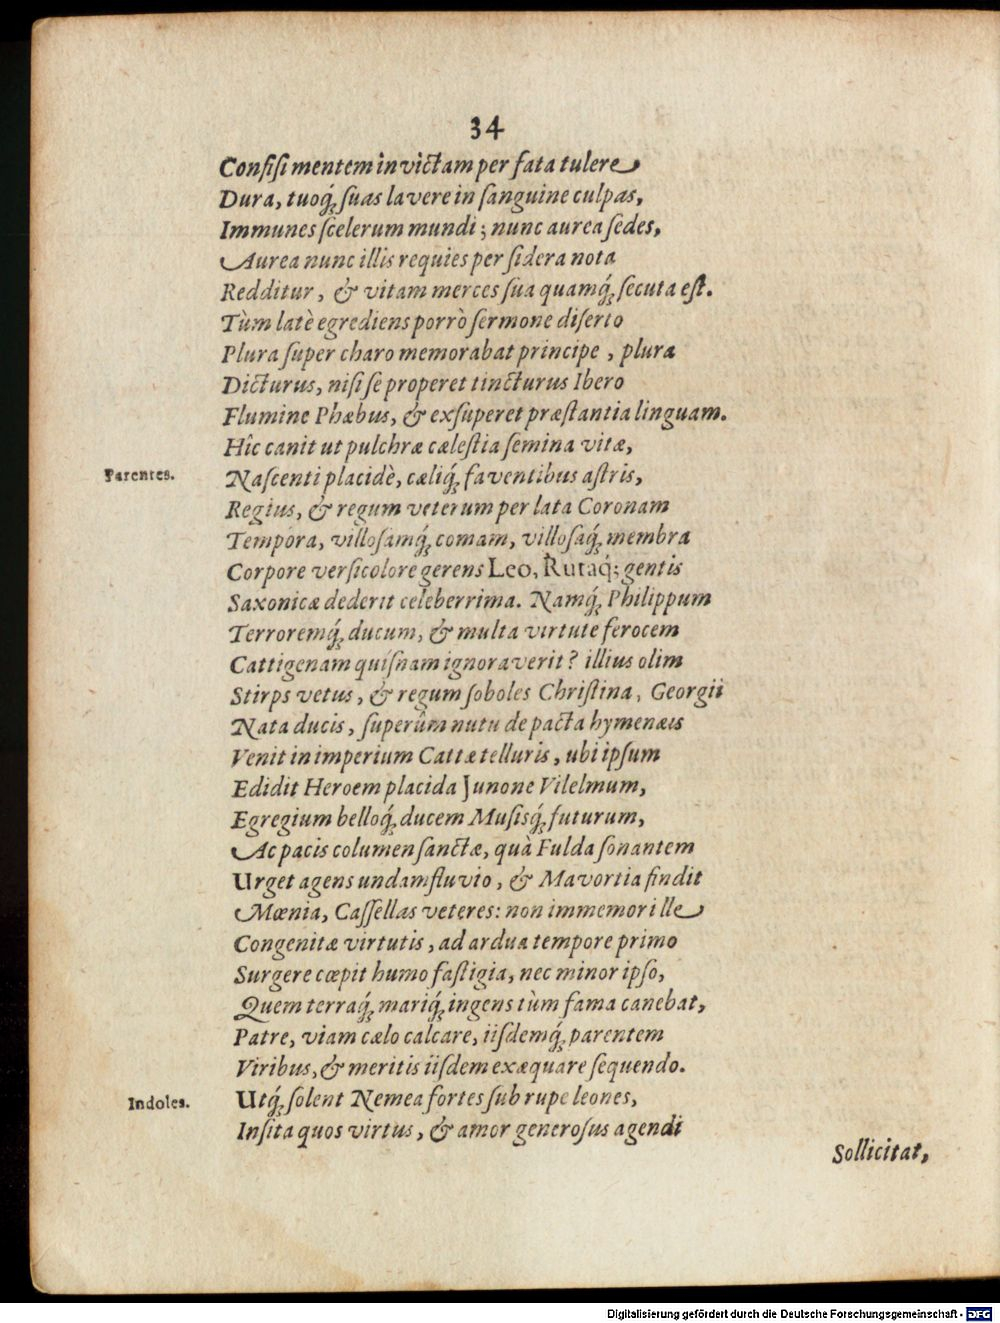 34
Confiſi mentem invictam per fata tulere
Dura, tuoq́ꝫ ſuas lavere in ſanguine culpas,
Immunes ſcelerum mundi; nunc aurea ſedes,
Aurea nunc illis requies per ſidera nota
Redditur, & vitam merces ſua quamq́ꝫ ſecuta eſt.
Tùm latè egrediens porrò ſermone diſerto
Plura ſuper charo memorabat principe, plura
Dicturus, niſi ſe properet tincturus Ibero
Flumine Phæbus, & exſuperet præſtantia linguam.
Hîc canit ut pulchræ cæleſtia ſemina vitæ,
Parentes.
Naſcenti placidè, cæliq́ꝫ faventibus aſtris,
Regius, & regum veterum per lata Coronam
Tempora, villoſamq́ꝫ comam, villoſaq́ꝫ membra
Corpore verſicolore gerens Leo, Rutaq́; gentis
Saxonicæ dederit celeberrima. Namq́ꝫ Philippum
Terroremq́ꝫ ducum, & multa virtute ferocem
Cattigenam quiſnam ignoraverit? illius olim
Stirps vetus, & regum ſoboles Chriſtina, Georgii
Nata ducis, ſuperûm nutu depacta hymenæis
Venit in imperium Cattæ telluris, ubi ipſum
Edidit Heroem placida Junone Vilelmum,
Egregium belloq́ꝫ ducem Muſisq́ꝫ futurum,
Ac pacis columen ſanctæ, quà Fulda ſonantem
Urget agens undam fluvio, & Mavortia findit
Mœnia, Caſſellas veteres: non immemor ille
Congenitæ virtutis, ad ardua tempore primo
Surgere cœpit humo faſtigia, nec minor ipſo,
Quem terraq́ꝫ mariq́ꝫ ingens tùm fama canebat,
Patre, viam cælo calcare, iiſdemq́ꝫ parentem
Viribus, & meritis iiſdem exæquare ſequendo.
Indoles.
Utq́ꝫ ſolent Nemea fortes ſub rupe leones,
Inſita quos virtus, & amor generoſus agendi
Sollicitat,
Digitalisierung gefördert durch die Deutsche Forschungsgemeinschaft - DFG